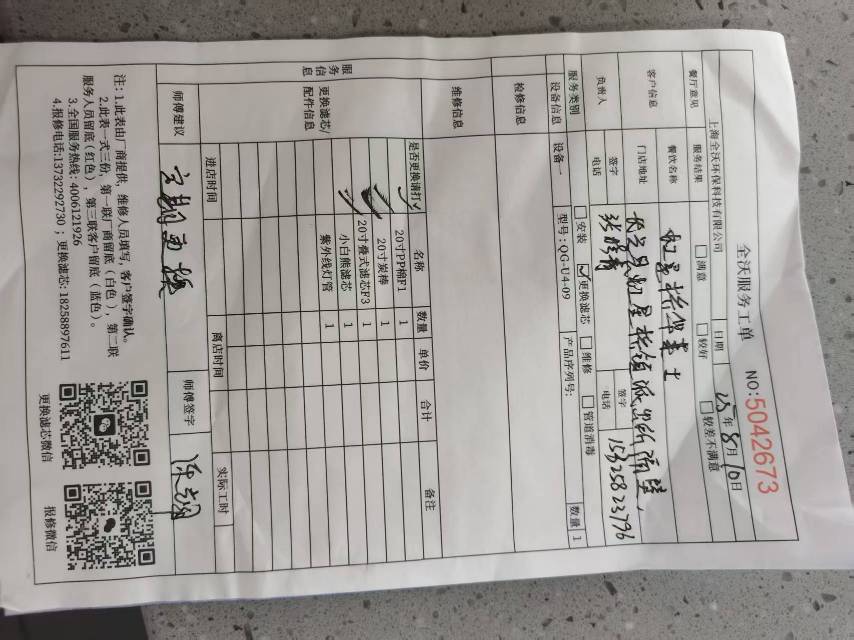 全沃服务工单
NO:5042673
上海全沃环保科技有限公司 日期 25年8月10日
餐厅意见 服务结果 □满意 □较好 □较差不满意
客户信息 餐饮名称 虹星桥华莱士
门店地址 长兴县虹星桥镇派出所隔壁,
负责人 签字 签字
电话 电话 15325823796
服务类别 □安装 ☑更换滤芯 □维修 □管道消毒
设备信息 设备一 型号:QG-U4-09 产品序列号: 数量 1
检修信息
维修信息
服务信息
更换滤芯/配件信息 是否更换请打✓ 名称 数量 单价 合计 备注
✓ 20寸PP棉F1 1
✓ 20寸炭棒 1
✓ 20寸叠式滤芯F3 1
✓ 小白熊滤芯 1
紫外线灯管 1
进店时间 离店时间 实际工时
师傅建议 定期更换 师傅签字
注:1.此表由厂商提供,维修人员填写,客户签字确认。
2.此表一式三份,第一联厂商留底(白色),第二联
服务人员留底(红色),第三联客户留底(蓝色)。
3.全国服务热线:4006121926
4.报修电话:13732292730;更换滤芯:18258897611
更换滤芯微信 报修微信